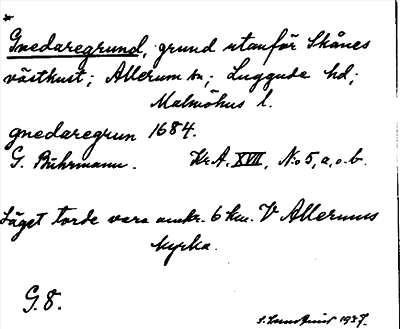 *
Gnedaregrund, grund utanför Skånes
västkust; Allerum sn; Luggude hd;
Malmöhus l.
gnedaregrun 1684.
G. Buhrmann. Kr.A. XVII, No 5, a.o.b.
Läget torde vara omkr. 6 km. V Allerums
kyrka.
G. 8.
1937.